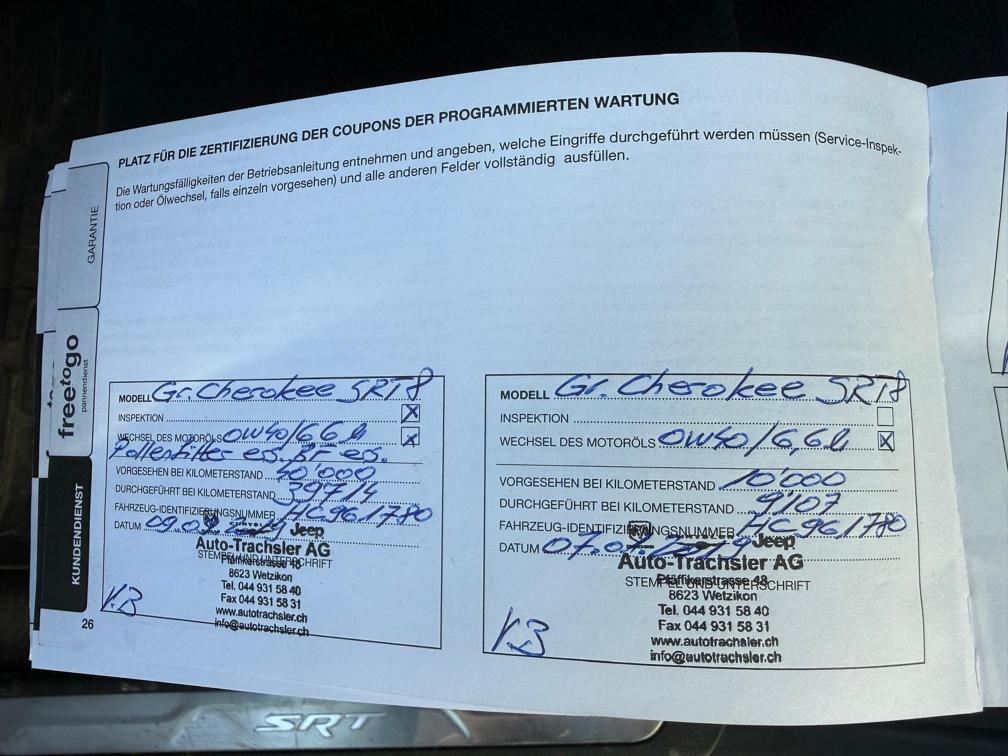 PLATZ FÜR DIE ZERTIFIZIERUNG DER COUPONS DER PROGRAMMIERTEN WARTUNG
Die Wartungsfälligkeiten der Betriebsanleitung entnehmen und angeben, welche Eingriffe durchgeführt werden müssen (Service-Inspek-
tion oder Ölwechsel, falls einzeln vorgesehen) und alle anderen Felder vollständig ausfüllen.
GARANTIE
freetogo
pannendienst
KUNDENDIENST
MODELL Gr. Cherokee SRT8
INSPEKTION X
WECHSEL DES MOTORÖLS 0W40/6,6 l X
Pollenfilter BF
VORGESEHEN BEI KILOMETERSTAND
DURCHGEFÜHRT BEI KILOMETERSTAND
FAHRZEUG-IDENTIFIZIERUNGSNUMMER HC961780
DATUM
Jeep
Auto-Trachsler AG
STEMPEL UND UNTERSCHRIFT
Pfäffikerstrasse 48
8623 Wetzikon
Tel. 044 931 58 40
Fax 044 931 58 31
www.autotrachsler.ch
info@autotrachsler.ch
26
MODELL Gr. Cherokee SRT8
INSPEKTION
WECHSEL DES MOTORÖLS 0W40/6,6 l X
VORGESEHEN BEI KILOMETERSTAND 10'000
DURCHGEFÜHRT BEI KILOMETERSTAND 9'107
FAHRZEUG-IDENTIFIZIERUNGSNUMMER HC961780
DATUM
Jeep
Auto-Trachsler AG
STEMPEL UND UNTERSCHRIFT
Pfäffikerstrasse 48
8623 Wetzikon
Tel. 044 931 58 40
Fax 044 931 58 31
www.autotrachsler.ch
info@autotrachsler.ch
SRT